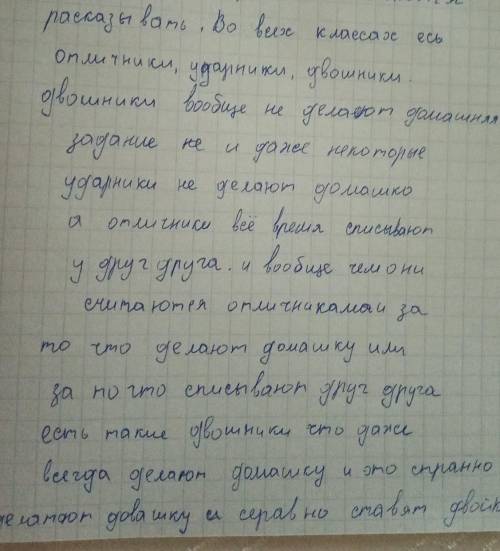 расказывать. Во всех классах есь
отличники, ударники, двошники.
двошники вообще не делают домашняя
задание не и даже некоторые
ударники не делают домашко
а отличники всё время списывают
у друг друга. и вообще чем они
считаются отличникамаи за
то что делают домашку или
за по что списывают друг друга
есть такие двошники что даже
всегда делают домашку и это странно
делатют довашку и серавно ставят двойк